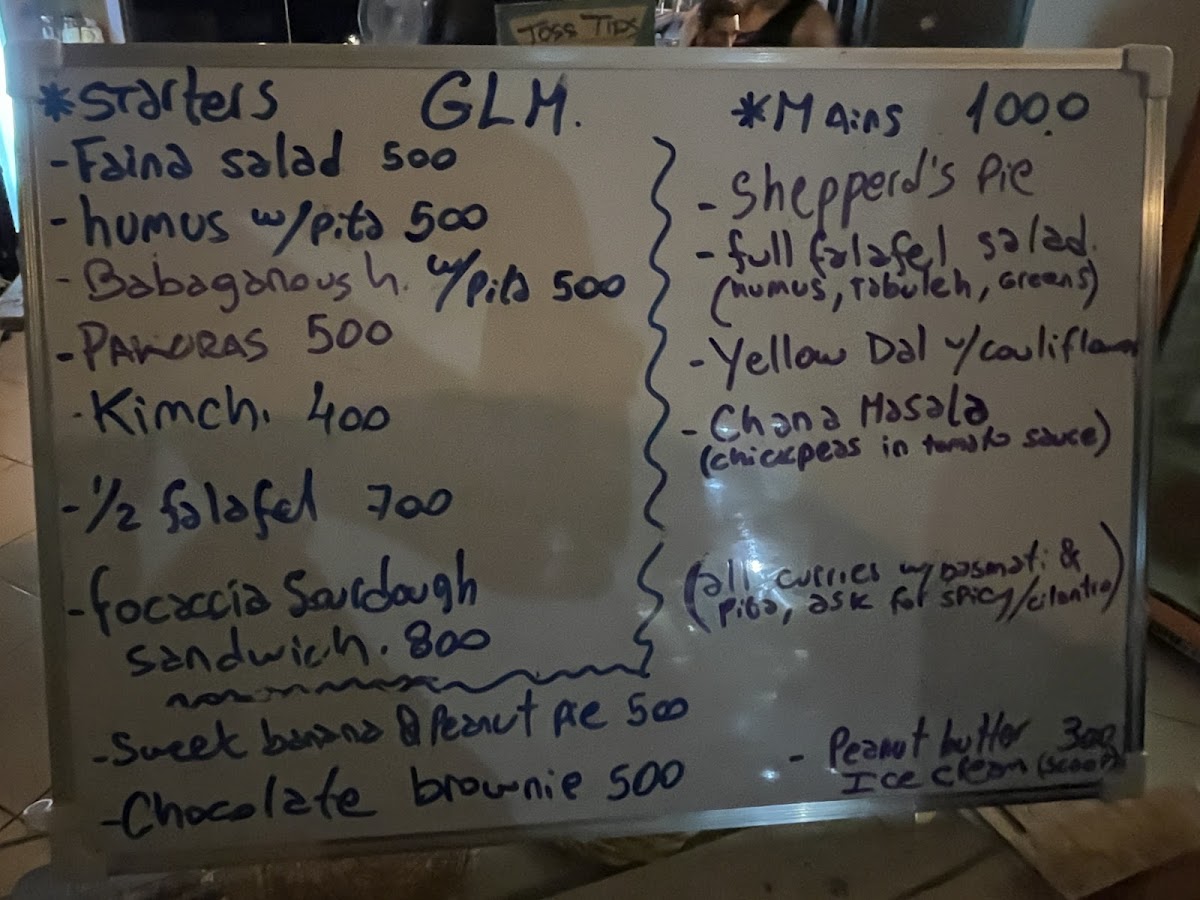 TOSS TIPS
*Starters
GLM.
-Faina salad 500
-humus w/pita 500
-Babaganoush. w/pita 500
-PAKORAS 500
-Kimchi 400
-1/2 falafel 700
-focaccia Sourdough
sandwich. 800
-Sweet banana & Peanut pie 500
-Chocolate brownie 500
*Mains 1000
-Shepperd's Pie
-full falafel salad.
(humus, tabuleh, Greens)
-Yellow Dal w/cauliflower
-Chana Masala
(chickpeas in tomato sauce)
(all curries w/basmati &
pita, ask for spicy/cilantro)
-Peanut butter 300
Ice cream (scoop)